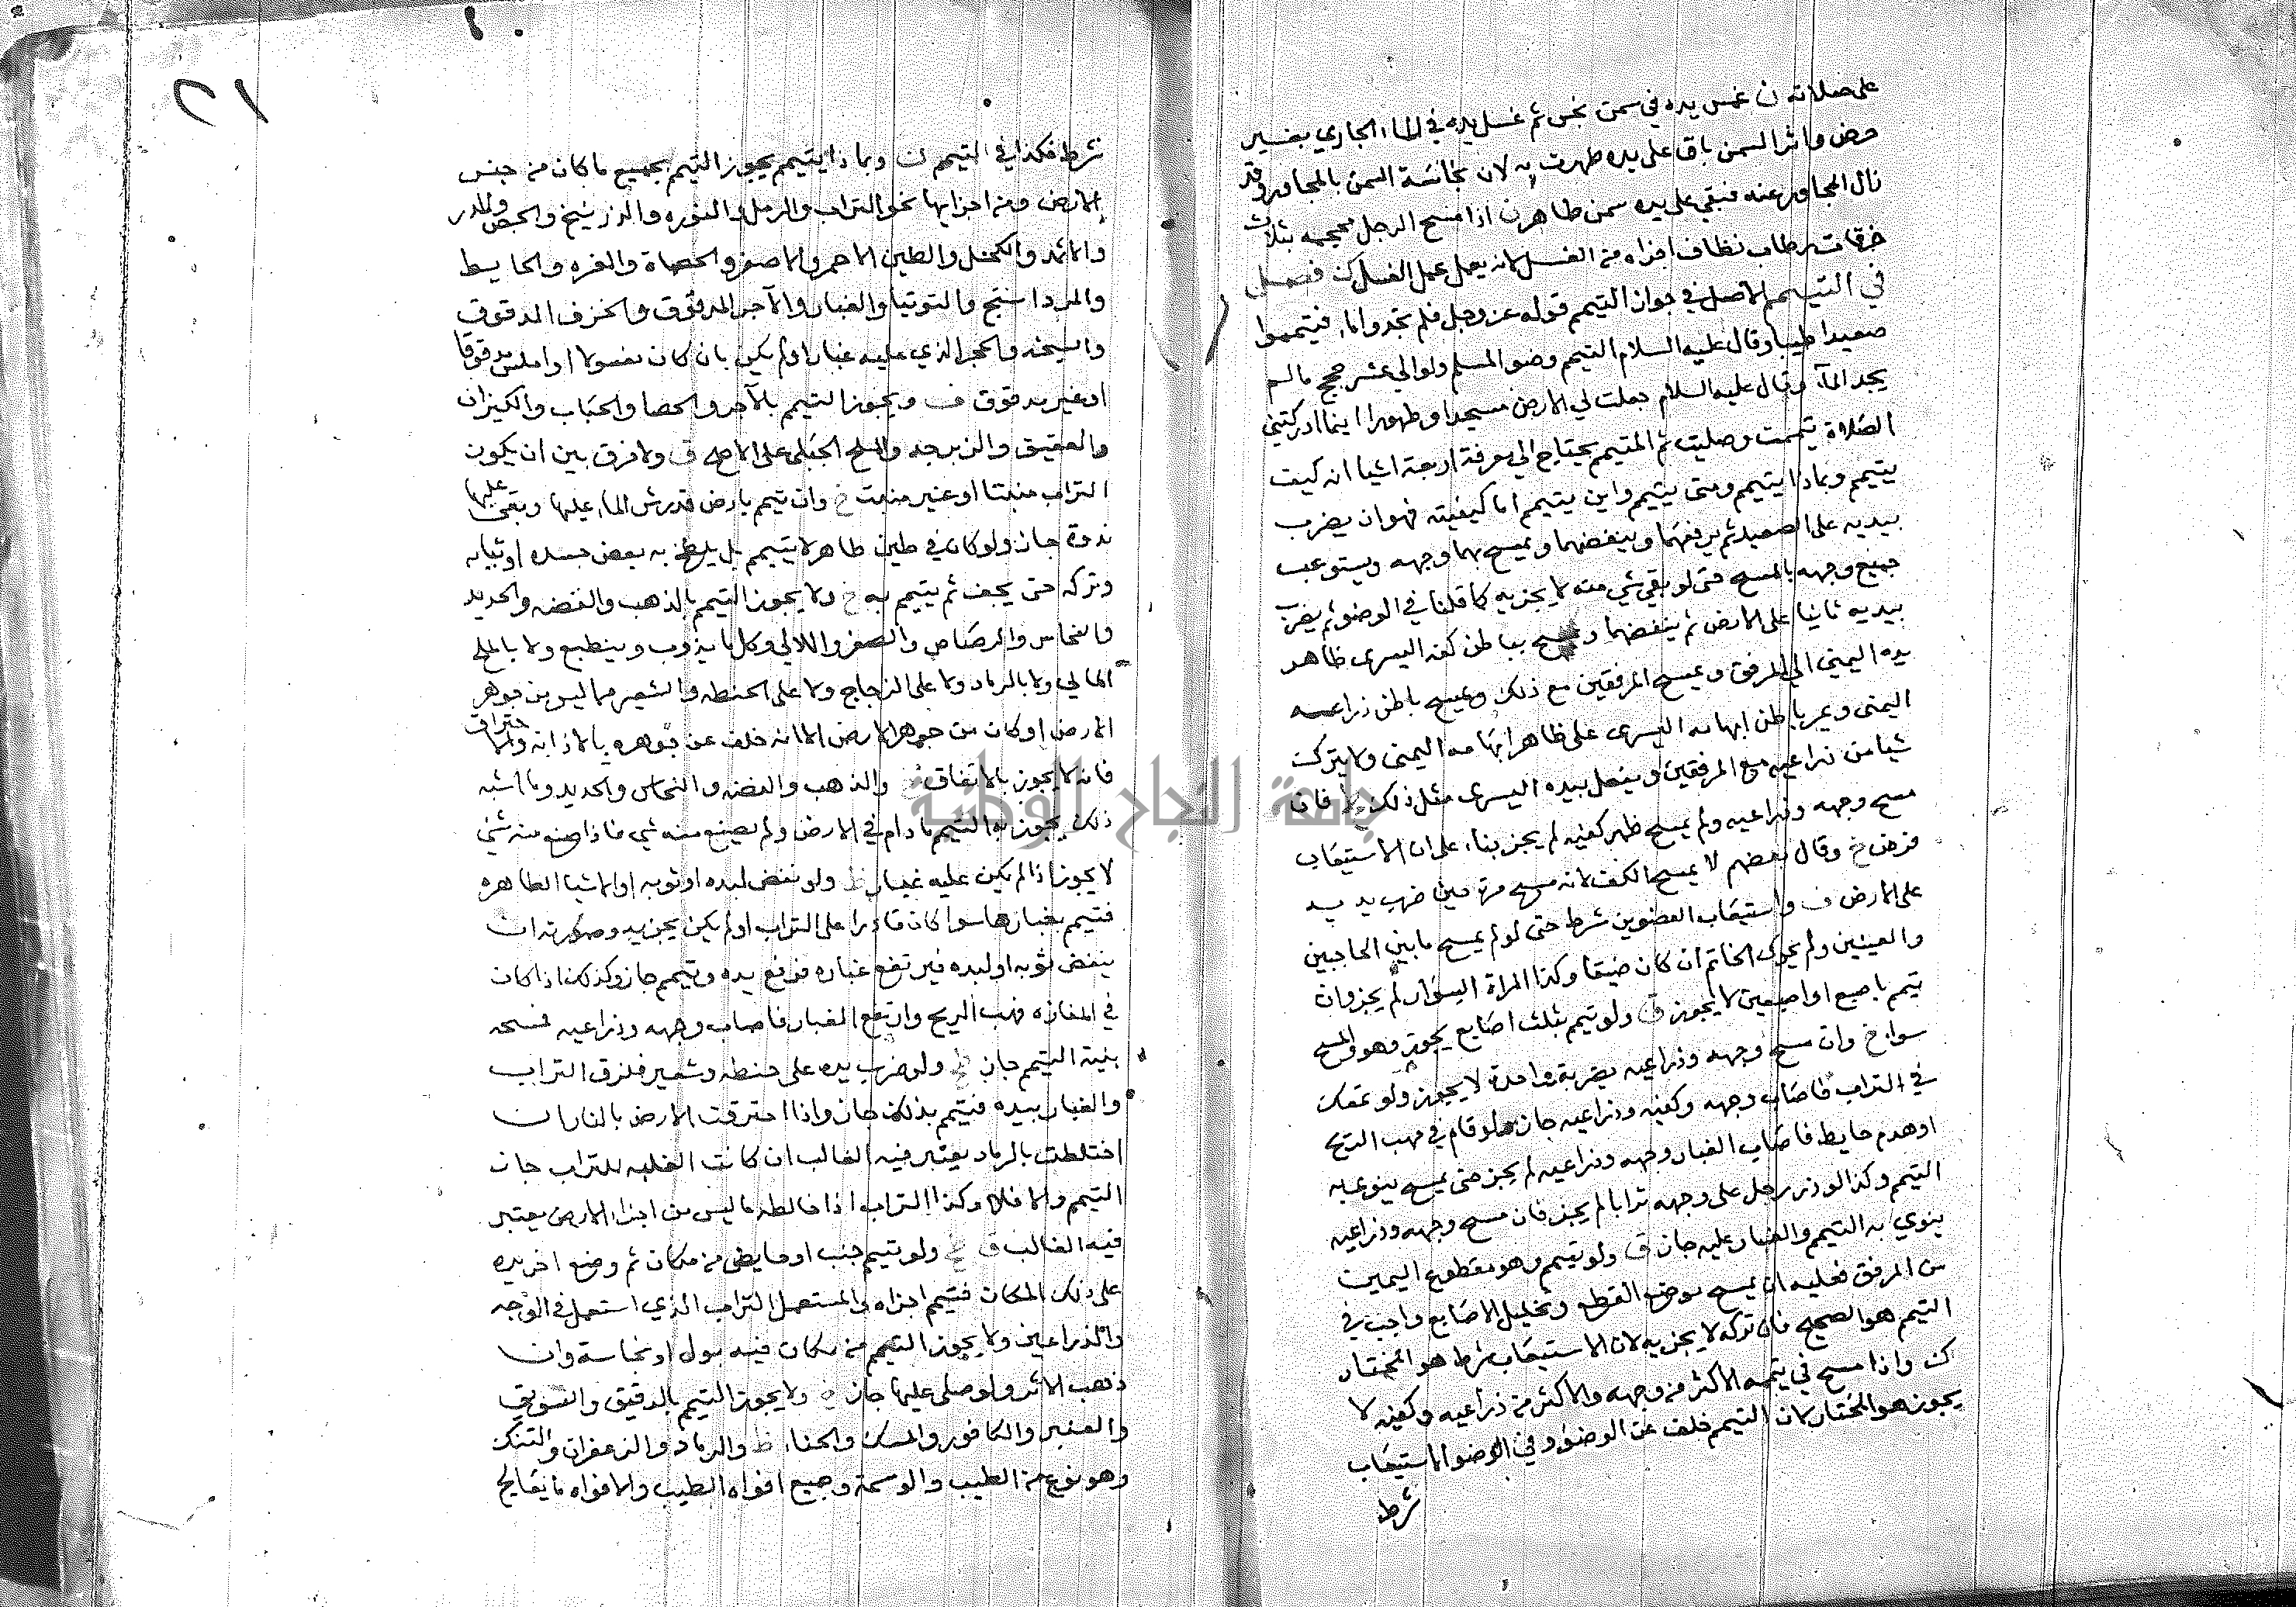 على صلاته ن غمس يده في سمن نجس ثم غسل يده في الماء الجاري بغير
حرض واثر السمن باق على يده طهرت به لان نجاسة السمن بالمجاوره وقد
زال المجاور عنه فبقي على يده سمن طاهر ن اذا مسح الرجل محجمه بثلاث
خرقات رطاب نظاف اجزاه من الغسل لانه يعمل عمل الغسل كن فصل
في التيمم الاصل في جواز التيمم قوله عز وجل فلم تجدوا ماء فتيمموا
صعيدا طيبا وقال عليه السلام التيمم وضو المسلم ولو الى عشر حجج ما لم
يجد المآء وقال عليه السلام جعلت لي الارض مسجدا وطهورا اينما ادركتني
الصلاة تيممت وصليت ثم المتيمم يحتاج الى معرفة اربعة اشيا انه كيف
يتيمم وبماذا يتيمم ومتى يتيمم واين يتيمم اما كيفيته فهو ان يضرب
بيديه على الصعيد ثم يرفعهما وينفضهما ويمسح بهما وجهه ويستوعب
جميع وجهه بالمسح حتى لو بقي شي منه لا يجزيه كما قلنا في الوضو ثم يضرب
بيديه ثانيا على الارض ثم ينفضهما ويمسح بباطن كفه اليسرى ظاهر
يده اليمنى الى المرفق ويمسح المرفقين مع ذلك ويمسح باطن ذراعه
اليمنى ويمر باطن ابهامه اليسرى على ظاهر ابهامه اليمنى ولا يترك
شيا من ذراعيه مع المرفقين ويفعل بيده اليسرى مثل ذلك فان
مسح وجهه وذراعيه ولم يمسح ظهر كفيه لم يجز بناء على ان الاستيعاب
فرض خ وقال بعضهم لا يمسح الكف لانه مسح مرة حين ضرب يديه
على الارض ف واستيعاب العضوين شرط حتى لو لم يمسح ما بين الحاجبين
والعينين ولم يحرك الخاتم ان كان ضيقا وكذا المراة السوار لم يجز وان
تيمم باصبع او اصبعين لا يجوز ق ولو تيمم بثلث اصابع يجوز وهو والمسح
سوا خ وان مسح وجهه وذراعيه بضربة واحدة لا يجوز ولو تمعك
في التراب فاصاب وجهه وكفيه وذراعيه جاز ولو قام في مهب الريح
او هدم حايط فاصاب الغبار وجهه وذراعيه لم يجز حتى يمسح ينوي به
التيمم وكذا لو ذر رجل على وجهه ترابا لم يجز فان مسح وجهه وذراعيه
ينوي به التيمم والغبار عليه جاز ق ولو تيمم وهو مقطوع اليمين
من المرفق فعليه ان يمسح موضع القطع وتخليل الاصابع واجب في
التيمم هو الصحيح فان تركه لا يجزيه لان الاستيعاب شرط هو المختار
كن واذا مسح في تيممه الاكثر من وجهه والاكثر من ذراعيه وكفيه لا
يجوز هو المختار لان التيمم خلف عن الوضو وفي الوضو الاستيعاب
شرط
٢١
شرط فكذا في التيمم ن وبماذا يتيمم يجوز التيمم بجميع ما كان من جنس
الارض ومن اجزايها نحو التراب والرمل والنوره والزرنيخ والجص والمدر
والاثمد والكحل والطين الاحمر والاصفر والحصاة والمغره والحايط
والمرداسنج والتوتيا والغبار والآجر المدقوق والخزف المدقوق
والسبخه والحجر الذي عليه غبار او لم يكن بان كان مغسولا او املس مدقوقا
او غير مدقوق ف ويجوز التيمم بالآجر والحصا والحباب والكيزان
والعقيق والزبرجد والملح الجبلي على الاصح ق ولا فرق بين ان يكون
التراب منبتا او غير منبت خ وان تيمم بارض قد رش الماء عليها وبقى عليها
ندوة جاز ولو كان في طين طاهر لا يتيمم بل يلطخ به بعض جسده او ثيابه
وتركه حتى يجف ثم يتيمم به خ ولا يجوز التيمم بالذهب والفضه والحديد
والنحاس والرصاص والصفر واللالي وكل ما يذوب وينطبع ولا بالملح
المالي ولا بالرماد ولا على الزجاج ولا على الحنطه والشعير مما ليس من جوهر
الارض او كان من جوهر الارض الا انه خلف عن جوهره بالاذابه والاحتراق
فانه لا يجوز بالاتفاق والذهب والفضه والنحاس والحديد وما اشبه
ذلك يجوز به التيمم ما دام في الارض ولم يصنع منه شي فاذا صنع منه شي
لا يجوز اذا لم يكن عليه غبار ظ ولو نفض لبده او ثوبه او الاشيا الطاهره
فتيمم بغبارها سوا كان قادرا على التراب او لم يكن يجزيه وصورته ان
ينفض ثوبه او لبده فيرتفع غباره فرفع يده وتيمم جاز وكذلك اذا كان
في المفازه فهب الريح وارتفع الغبار فاصاب وجهه وذراعيه فمسحه
بنية التيمم جاز خ ولو ضرب يده على حنطه وشعير فلزق التراب
والغبار بيده فتيمم بذلك جاز واذا احترقت الارض بالنار ان
اختلطت بالرماد يعتبر فيه الغالب ان كانت الغلبه للتراب جاز
التيمم والا فلا وكذا التراب اذا خالطه ما ليس من اجزاء الارض يعتبر
فيه الغالب ق خ ولو تيمم جنب او حايض من مكان ثم وضع اخر يده
على ذلك المكان فتيمم اجزاه والمستعمل التراب الذي استعمل في الوجه
والذراعين ولا يجوز التيمم من مكان فيه بول او نجاسة وان
ذهب الاثر ولو صلى عليها جاز خ ولا يجوز التيمم بالدقيق والسويق
والعنبر والكافور والمسك والحناء ظ والرماد والزعفران والتنك
وهو نوع من الطيب والوسمة وجميع افواه الطيب والافواه ما يعالج
جامعة النجاح الوطنية